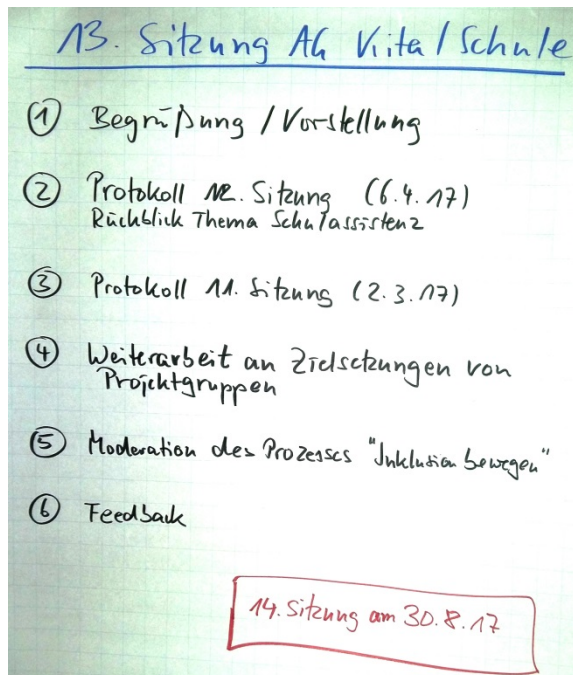 13. Sitzung AG Kita/Schule
① Begrüßung / Vorstellung
② Protokoll 12. Sitzung (6.4.17)
Rückblick Thema Schulassistenz
③ Protokoll 11. Sitzung (2.3.17)
④ Weiterarbeit an Zielsetzungen von
Projektgruppen
⑤ Moderation des Prozesses "Inklusion bewegen"
⑥ Feedback
14. Sitzung am 30.8.17